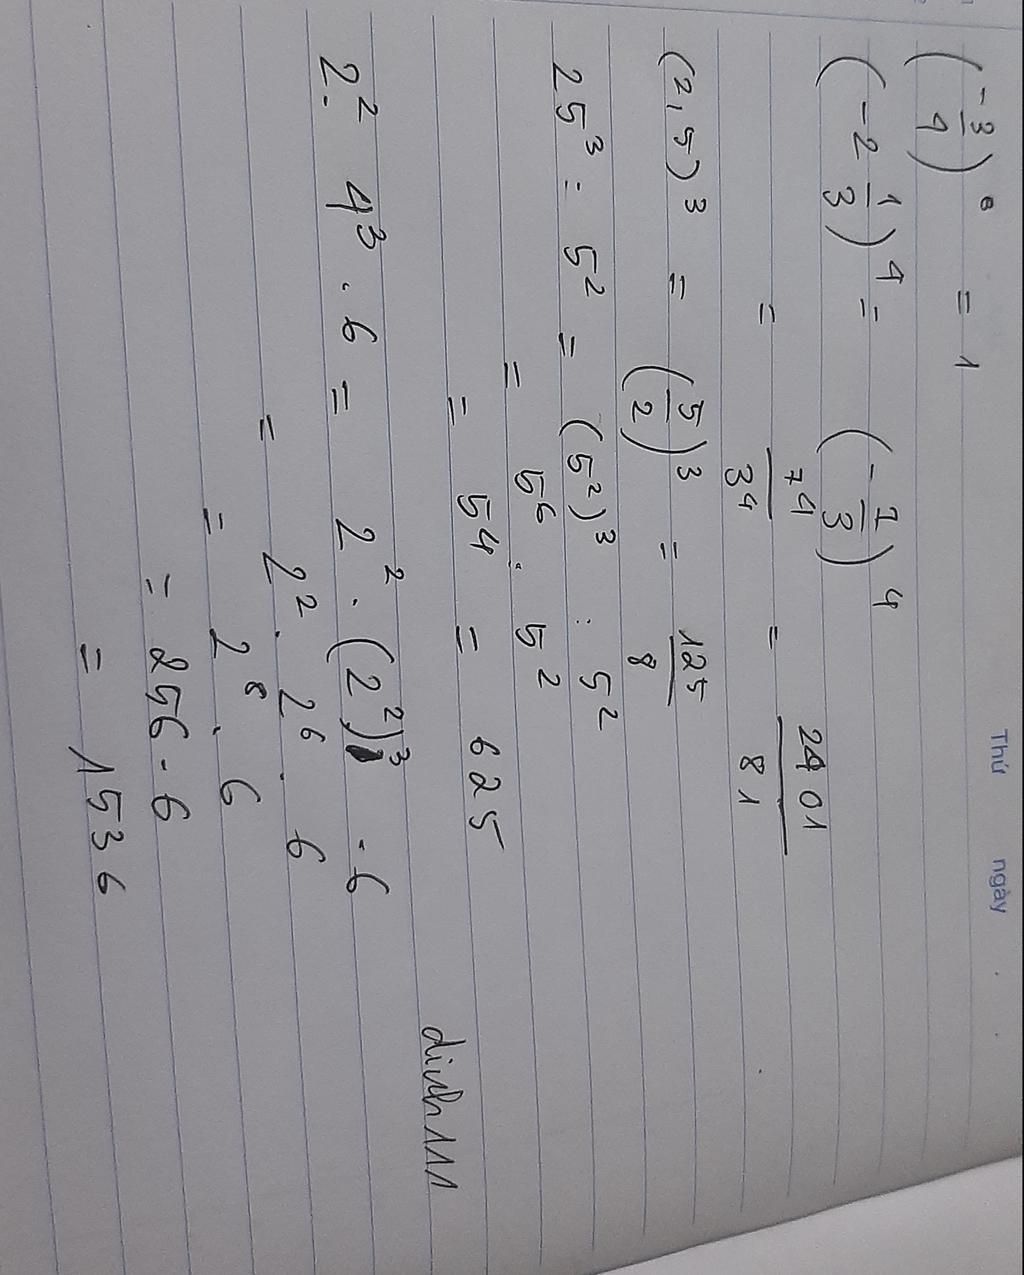 Thứ ngày
(-3/4)⁰ = 1
(-2 1/3)⁴ = (-7/3)⁴
= 7⁴/3⁴ = 2401/81
(2,5)³ = (5/2)³ = 125/8
25³ : 5² = (5²)³ : 5²
= 5⁶ : 5²
= 5⁴ = 625
2². 4³ . 6 = 2² . (2²)³ . 6
= 2² . 2⁶ . 6
= 2⁸ . 6
= 256 . 6
= 1536
dinh111